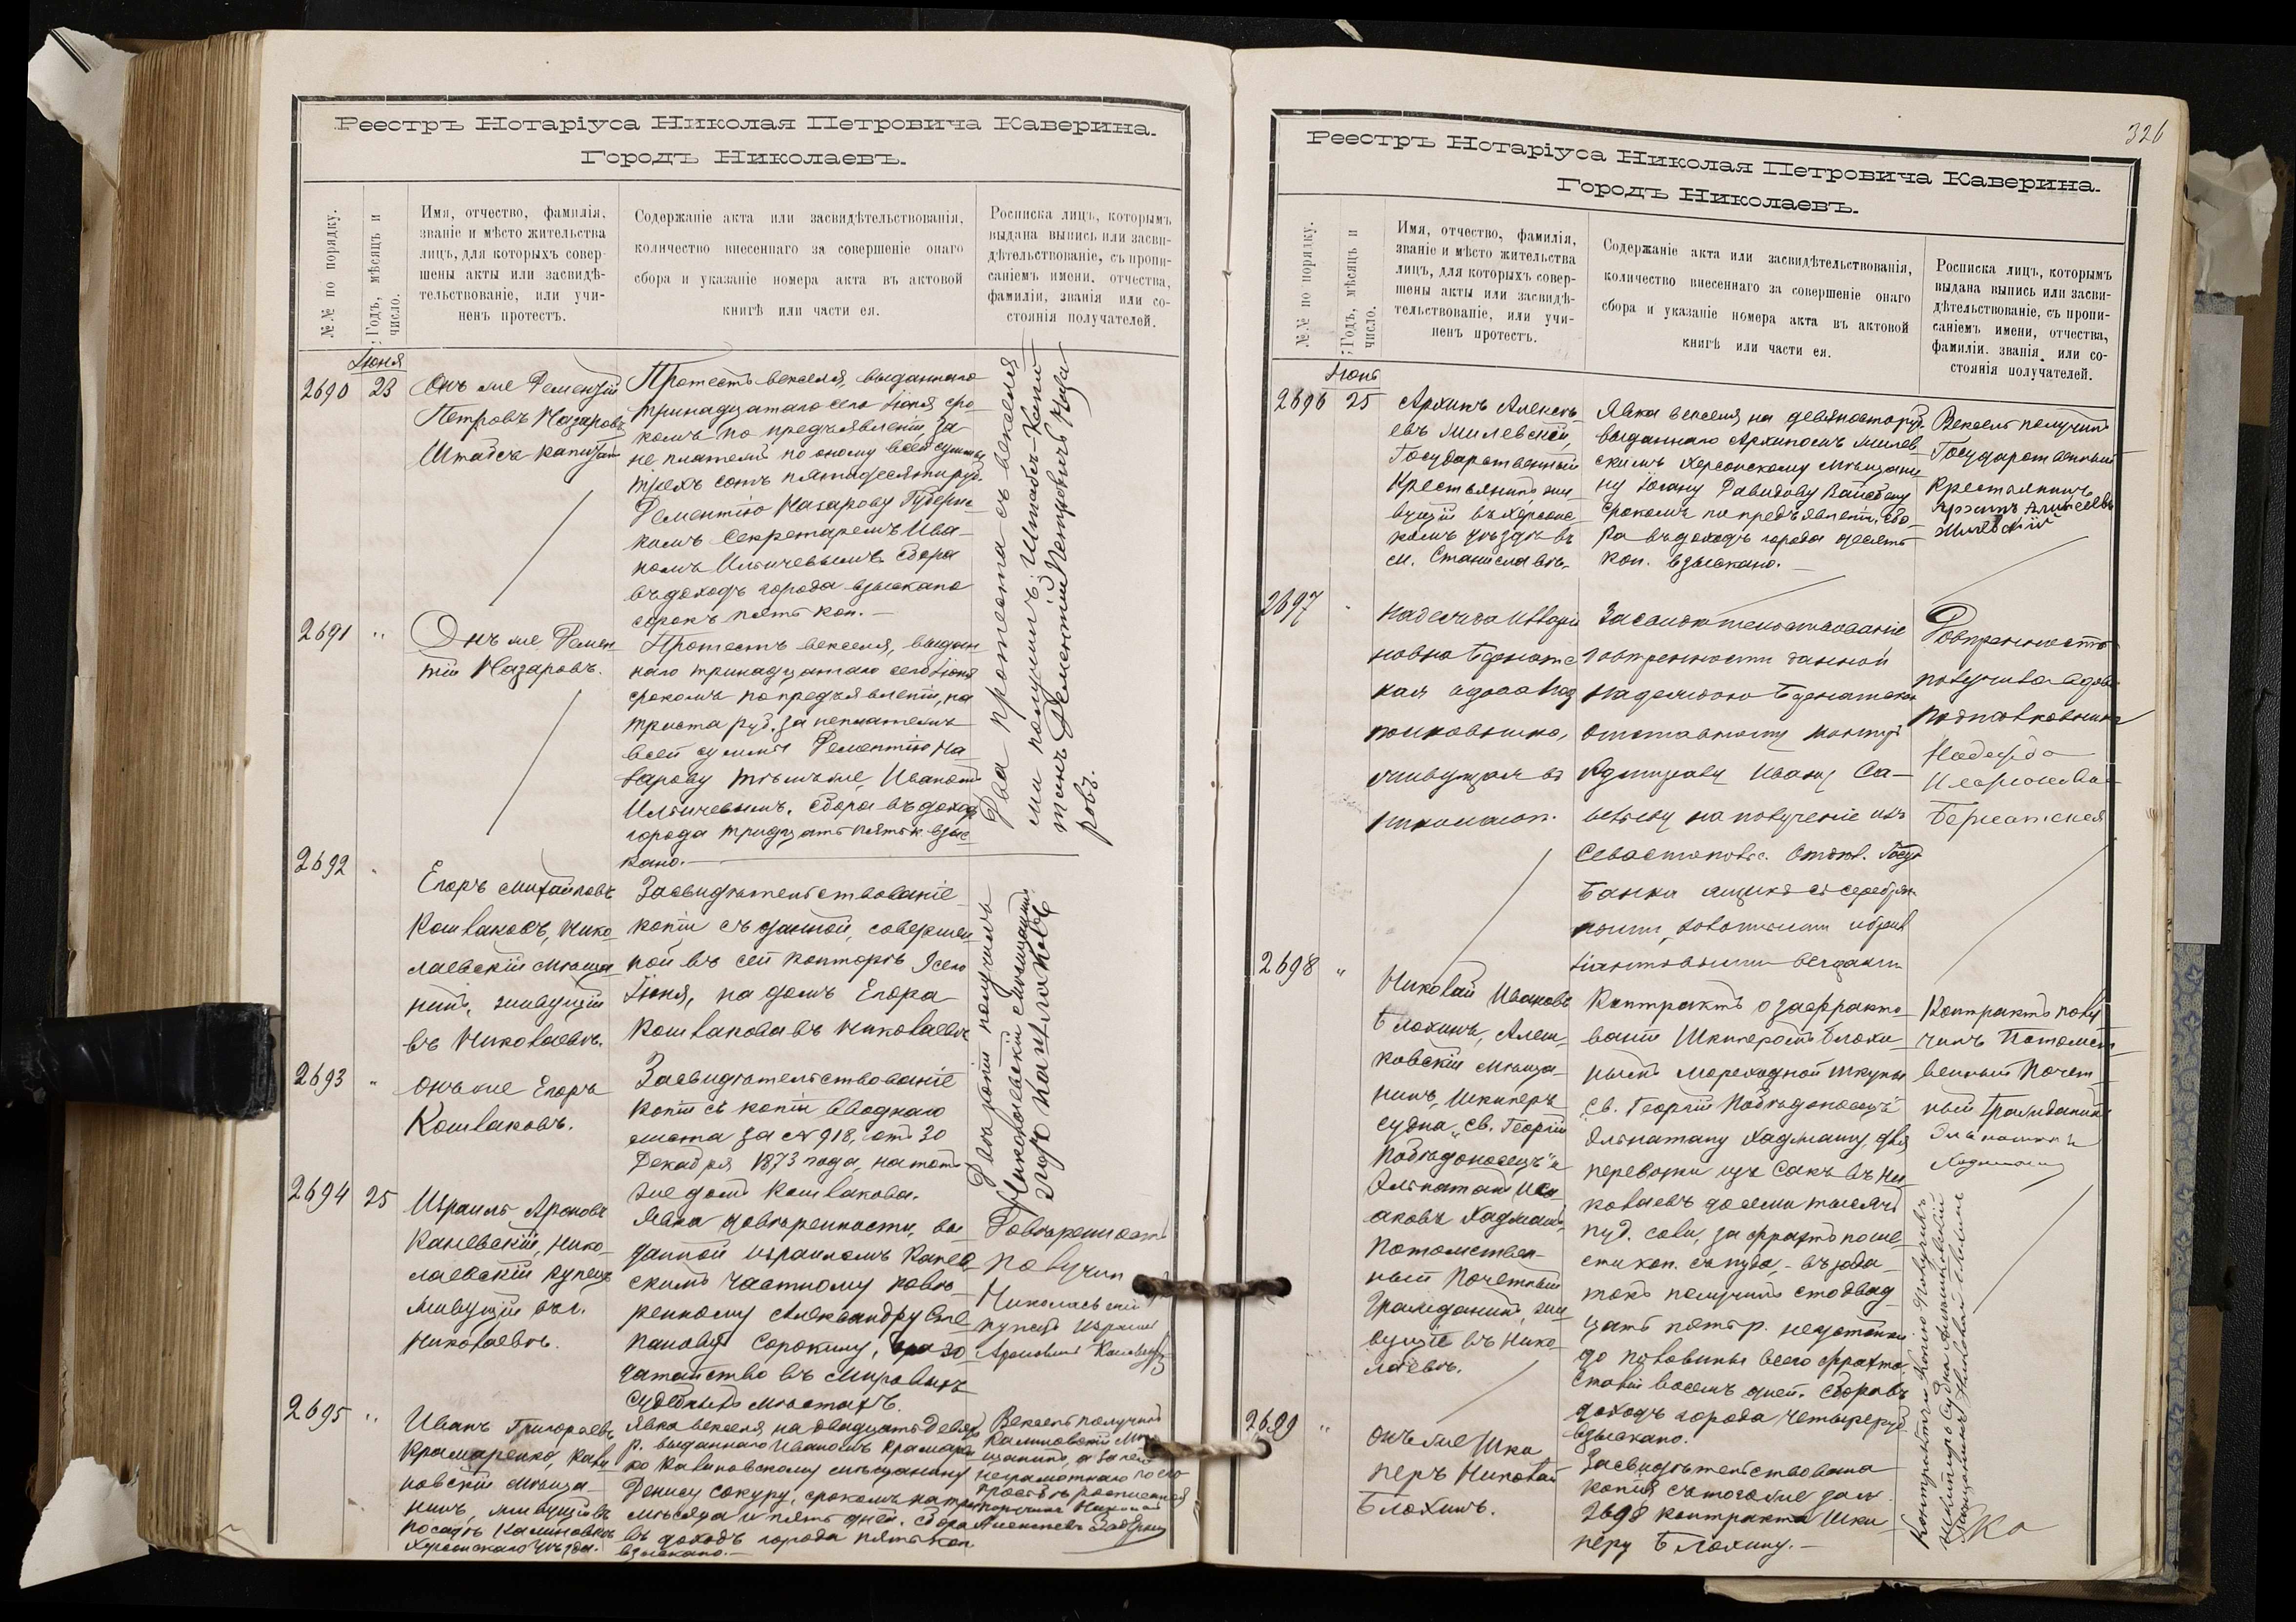 Реестръ Нотаріуса Николая Петровича Каверина.
Городъ Николаевъ.
№№ по порядку.
Годъ, мѣсяцъ и
число.
Имя, отчество, фамилія,
званіе и мѣсто жительства
лицъ, для которыхъ совер-
шены акты или засвидѣ-
тельствованіе, или учи-
ненъ протестъ.
Содержаніе акта или засвидѣтельствованія,
количество внесеннаго за совершеніе онаго
сбора и указаніе номера акта въ актовой
книгѣ или части ея.
Росписка лицъ, которымъ
выдана выпись или засви-
дѣтельствованіе, съ пропи-
саніемъ имени, отчества,
фамиліи, званія или со-
стоянія получателей.
Іюня
2690
23
Онъ же Дементій
Петровъ Назаровъ
Штабсъ капитанъ
Протестъ векселя, выданнаго
тринадцатаго сего Іюня сро-
комъ по предъявленіи за
не платежъ по оному всей суммы
трехъ сотъ пятидесяти руб.
Дементію Назарову Губерн-
скимъ Секретаремъ Ива-
номъ Ильичевымъ. Сбора
въ доходъ города взыскано
сорокъ пять коп. —
2691
"
Онъ же Демен-
тій Назаровъ.
Протестъ векселя, выдан-
наго тринадцатаго сего Іюня
срокомъ по предъявленіи, на
триста руб. за неплатежъ
всей суммы Дементію На
зарову тѣмъ же Иваномъ
Ильичевымъ. Сбора въ доходъ
города тридцать пять к. взыс-
кано. —
Два протеста съ векселя
ми получилъ: Штабсъ-Капи
танъ Дементій Петровичъ Наза
ровъ.
2692
"
Егоръ Михайловъ
Кошлаковъ, Нико-
лаевскій мѣща-
нинъ, живущій
въ Николаевѣ.
Засвидѣтельствованіе
копіи съ данной, совершен-
ной въ сей конторѣ 9 сего
Іюня, на домъ Егора
Кошлакова въ Николаевѣ
2693
"
Онъ же Егоръ
Кошлаковъ.
Засвидѣтельствованіе
копіи съ копіи вводнаго
листа за № 918, отъ 30
Декабря 1873 года, на тотъ
же домъ Кошлакова.
Двѣ копіи получилъ
Николаевскій мѣщанинъ
Егоръ Кошлаковъ
2694
25
Израиль Ароновъ
Каневскій, Нико-
лаевскій купецъ
живущій въ г.
Николаевѣ.
Явка довѣренности, вы
данной Израилемъ Канев
скимъ частному повѣ-
ренному Александру Сте
панову Сорокину, на хо
датайство въ Мировыхъ
Судебныхъ мѣстахъ.
Довѣренность
получил
Николаевскій
купецъ Израиль
Ароновичъ Каневскій
2695
"
Иванъ Григорьевъ
Крамаренко, Кали
новскій мѣща-
нинъ, живущій въ
посадѣ Калиновкѣ
Херсонскаго уѣзда.
Явка векселя на двадцать девять
р. выданнаго Иваномъ Крамарен-
ко Калиновскому мѣщанину
Денису Сокуру, срокомъ на три
мѣсяца и пять дней. Сбора
въ доходъ города пять коп.
взыскано. —
Вексель получилъ
Калиновскій Мѣ
щанинъ, а за него
неграмотнаго по его
просьбѣ росписался
Николай
Алексѣевъ
326
Реестръ Нотаріуса Николая Петровича Каверина.
Городъ Николаевъ.
№№ по порядку.
Годъ, мѣсяцъ и
число.
Имя, отчество, фамилія,
званіе и мѣсто жительства
лицъ, для которыхъ совер-
шены акты или засвидѣ-
тельствованіе, или учи-
ненъ протестъ.
Содержаніе акта или засвидѣтельствованія,
количество внесеннаго за совершеніе онаго
сбора и указаніе номера акта въ актовой
книгѣ или части ея.
Росписка лицъ, которымъ
выдана выпись или засви-
дѣтельствованіе, съ пропи-
саніемъ имени, отчества,
фамиліи, званія или со-
стоянія получателей.
Іюнь
2696
25
Архипъ Алексѣ-
евъ Милевскій,
Государственный
крестьянинъ жи-
вущій въ Херсонс-
комъ уѣздѣ въ
м. Станиславѣ.
Явка векселя на девяносто руб.
выданнаго Архипомъ Милев
скимъ Херсонскому мѣщани
ну Іоганну Давидову Вайсбему
срокомъ по предъявленіи. Сбо-
ра въ доходъ города десять
коп. взыскано. —
Вексель получилъ
Государственный
крестьянинъ
Архипъ Алексѣевъ
Милевскій
2697
"
Надежда Иларіо
новна Бернатс
кая вдова Под
полковника,
живущая въ
Николаев.
Засвидѣтельствованіе
довѣренности данной
Надеждою Бернатскою
отставному контръ
Адмиралу Ивану Са-
вельеву на полученіе изъ
Севастопольс. Отдѣл. Госуд
Банка ящика съ серебрян
ными, золотыми и брил
ліантовыми вещами
Довѣренность
получила вдова
Подполковника
Надежда
Иларионовна
Бернатская
2698
"
Николай Ивановъ
Блохинъ, Алеш-
ковскій мѣща-
нинъ, Шкиперъ
судна „Св. Георгій
Побѣдоносецъ" и
Эльнатанъ Иса
аковъ Хаджи,
Потомствен-
ный Почетный
Гражданинъ, жи
вущіе въ Нико-
лаевѣ.
Контрактъ о зафрахто
ваніи Шкиперомъ Блохи-
нымъ мореходной шкуны
„Св. Георгій Побѣдоносецъ"
Эльнатану Хаджи, для
перевозки изъ Сакъ въ Ни
колаевъ до семи тысячъ
пуд. соли, за фрахтъ по ше-
сти коп. съ пуда, - въ зада-
токъ получилъ сто двад
цать пять р. неустойки
до половины всего фрахта
Сталій восемь дней. Сбора въ
доходъ города четыре руб.
взыскано.
Контрактъ полу
чилъ Потомст
венный Почет-
ный Гражданинъ
Эльнатанъ
2699
"
Онъ же Шки
перъ Николай
Блохинъ.
Засвидѣтельствована
копія съ того же за №
2698 контракта Шки-
перу Блохину. —
Контрактъ и Копію получилъ
Шкиперъ Судна Алешковскій
Мѣщанинъ Николай Блохинъ